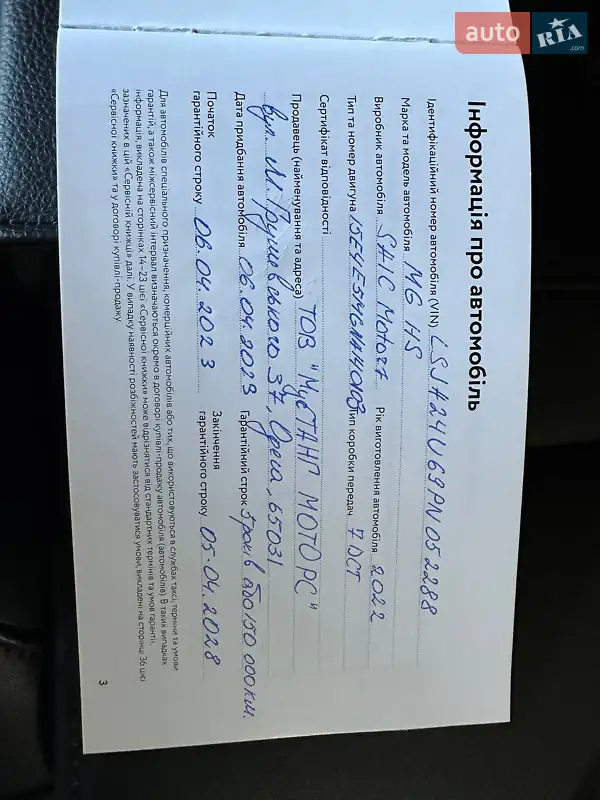 auto RIA .com
Інформація про автомобіль
Ідентифікаційний номер автомобіля (VIN) LSJA24U69PN052288
Марка та модель автомобіля MG HS
Виробник автомобіля SAIC Motor Рік виготовлення автомобіля 2022
Тип та номер двигуна Тип коробки передач 7 DCT
Сертифікат відповідності
Продавець (найменування та адреса) ТОВ "МУСТАНГ МОТОРС"
вул. М. Грушевського 37, Одеса, 65031
Дата придбання автомобіля 06.04.2023 Гарантійний строк 5 років або 150 000 км.
Початок гарантійного строку 06.04.2023 Закінчення гарантійного строку 05.04.2028
Для автомобілів спеціального призначення, комерційних автомобілів або тих, що використовуються в службах таксі, терміни та умови
гарантій, а також міжсервісний інтервал визначаються окремо в договорі купівлі-продажу автомобіля (автомобілів). В таких випадках
інформація, викладена на сторінках 14–23 цієї «Сервісної книжки» може відрізнятися від стандартних термінів та умов гарантії,
зазначених в цій «Сервісній книжці» далі. У випадку наявності розбіжностей мають застосовуватися умови, викладені на сторінці 36 цієї
«Сервісної книжки» та у договорі купівлі-продажу.
3